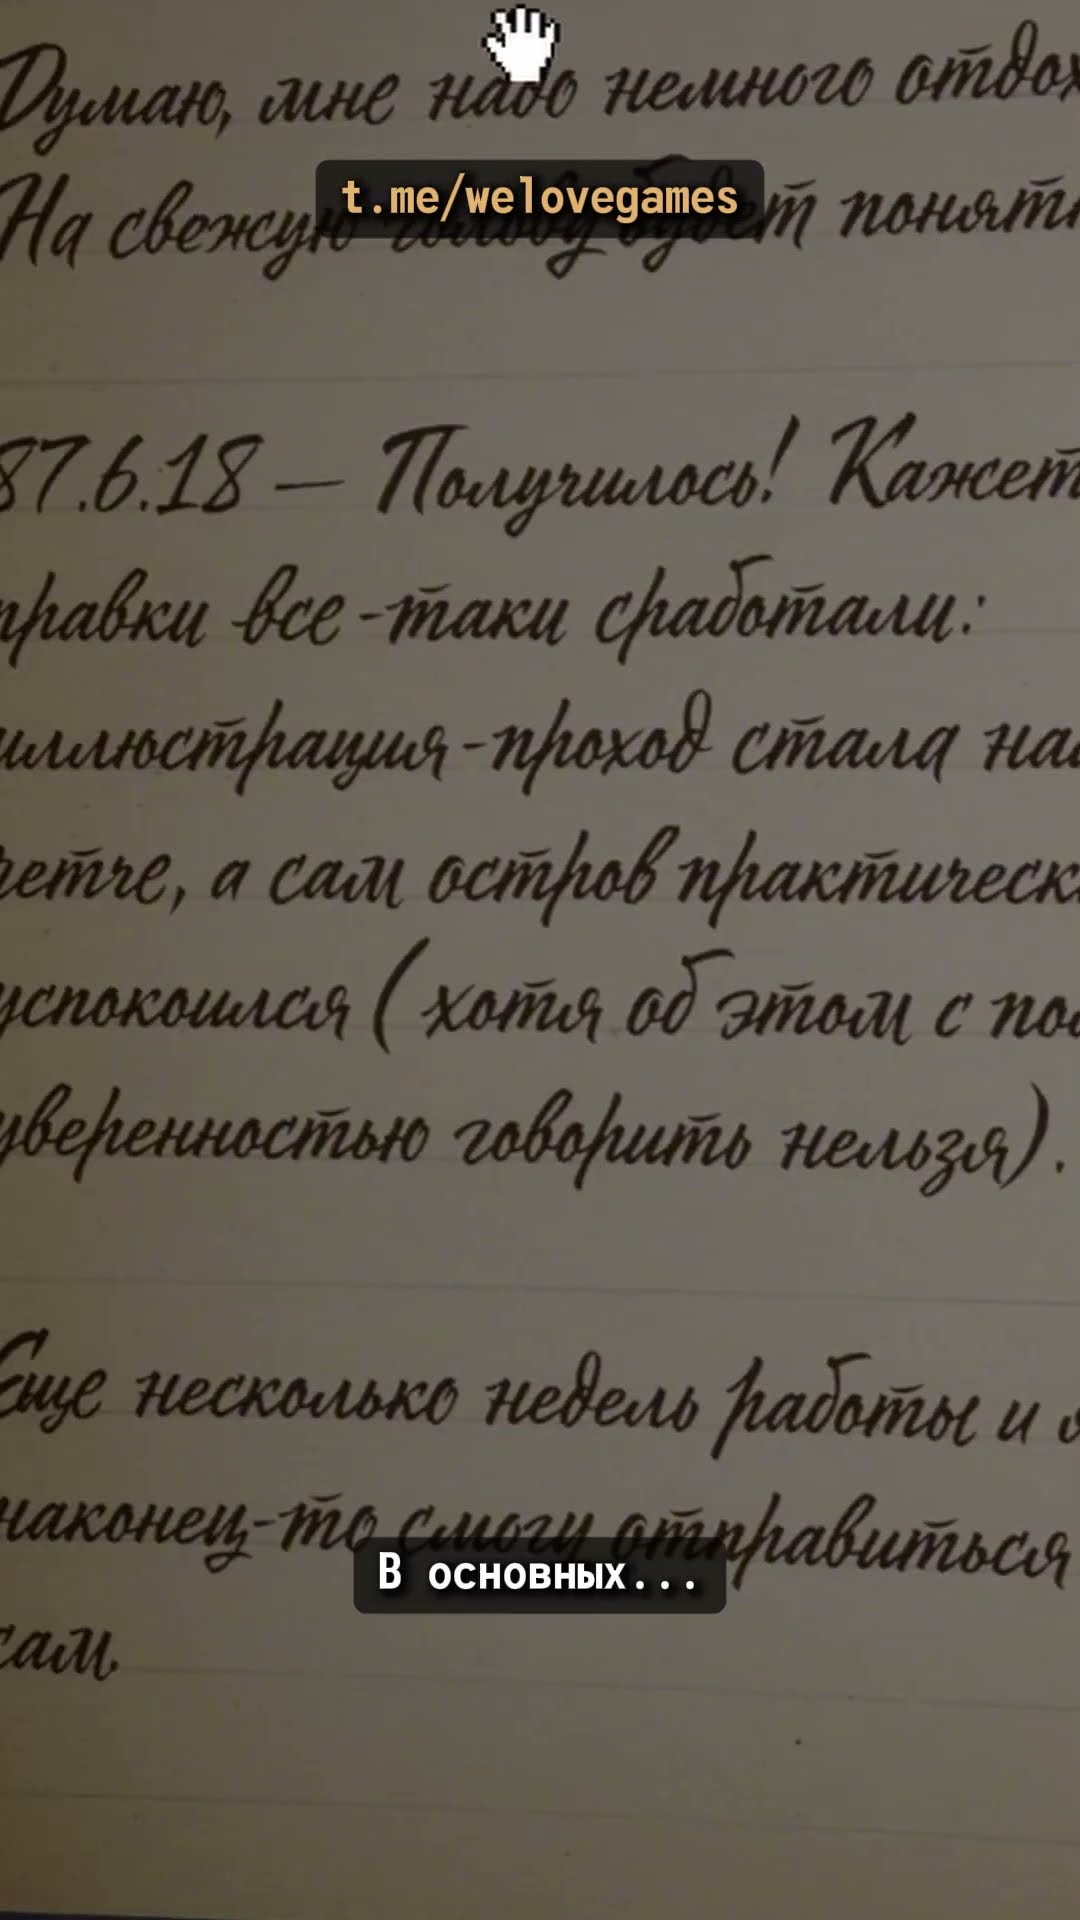 Думаю, мне надо немного отдох
t.me/welovegames
На свежую голову будет понятн
87.6.18 — Получилось! Кажет
правки все-таки сработали:
иллюстрация-проход стала на
четче, а сам остров практическ
успокоился (хотя об этом с по
уверенностью говорить нельзя).
Еще несколько недель работы и я
наконец-то смогу отправиться
В основных...
сам.